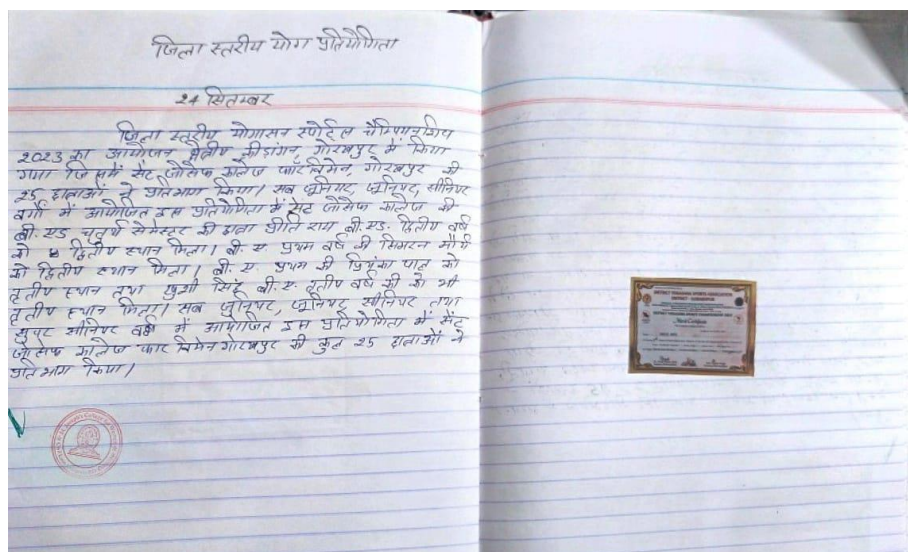 जिला स्तरीय योग प्रतियोगिता
24 सितम्बर
जिला स्तरीय योगासन स्पोर्टस चैम्पियनशिप
2023 का आयोजन क्रीडांगन, गोरखपुर में किया
गया जिसमें सेंट जोसेफ कालेज फॉर विमेन, गोरखपुर की
25 छात्राओं ने प्रतिभाग किया। सब जूनियर, जूनियर, सीनियर
वर्गो में आयोजित इस प्रतियोगिता में सेंट जोसेफ कालेज की
बी.एड चतुर्थ सेमेस्टर की छात्रा प्रीति राय बी.एड. द्वितीय वर्ष
को द्वितीय स्थान मिला। बी.ए प्रथम वर्ष की सिमरन मौर्य
को द्वितीय स्थान मिला। बी.ए. प्रथम की प्रियंका पाल को
तृतीय स्थान तथा खुशी सिंह बी.ए. तृतीय वर्ष की को भी
तृतीय स्थान मिला। सब जूनियर, जूनियर, सीनियर तथा
सुपर सीनियर वर्ग में आयोजित इस प्रतियोगिता में सेंट
जोसेफ कालेज फार विमेन गोरखपुर की कुल 25 छात्राओं ने
प्रतिभाग किया।